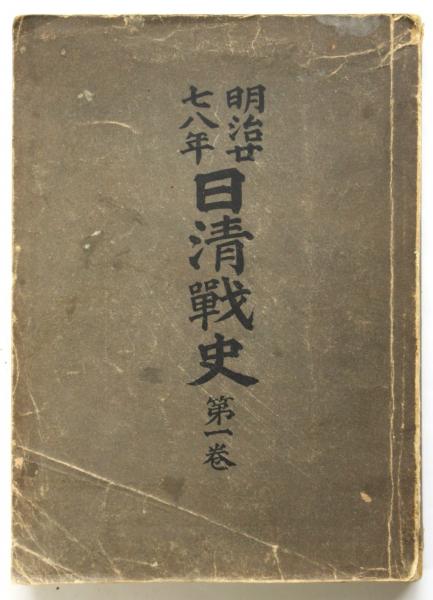 明治廿
七八年
日清戰史
第一卷